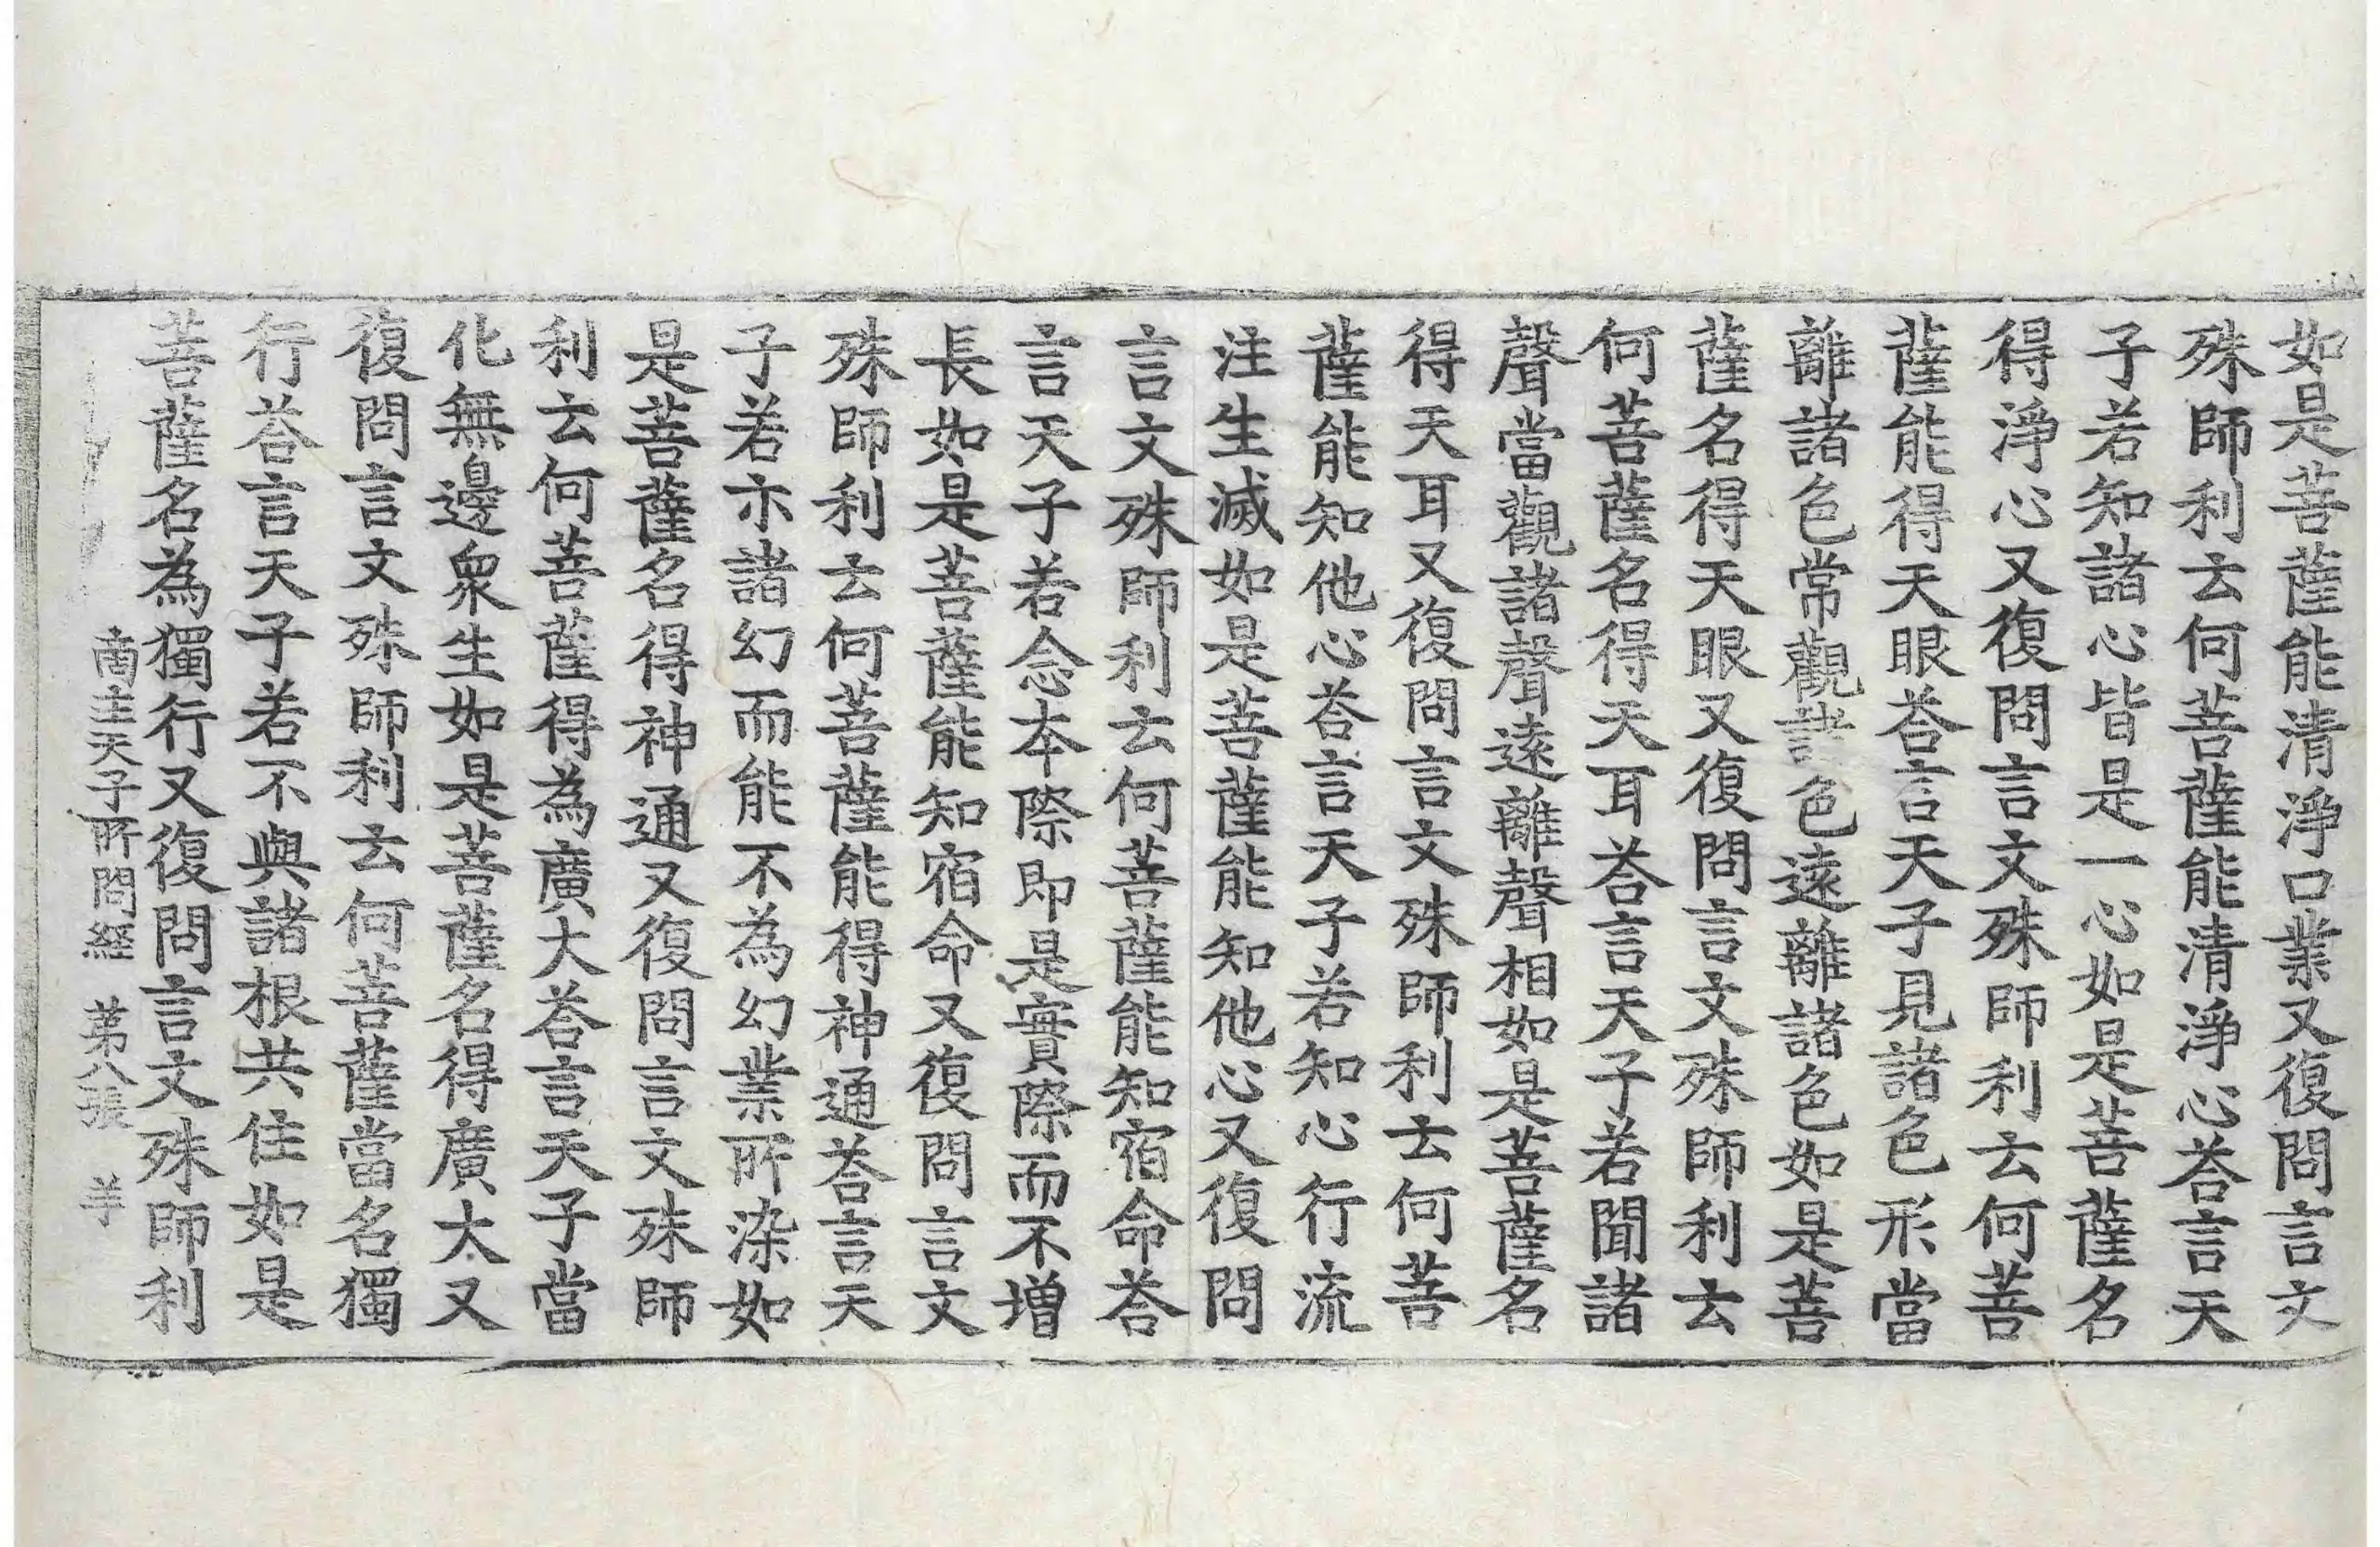 如是菩薩能清淨口業又復問言文
殊師利云何菩薩能清淨心荅言天
子若知諸心皆是一心如是菩薩名
得淨心又復問言文殊師利云何菩
薩能得天眼荅言天子見諸色形當
離諸色常觀諸色遠離諸色如是菩
薩名得天眼又復問言文殊師利云
何菩薩名得天耳荅言天子若聞諸
聲當觀諸聲遠離聲相如是菩薩名
得天耳又復問言文殊師利云何菩
薩能知他心荅言天子若知心行流
注生滅如是菩薩能知他心又復問
言文殊師利云何菩薩能知宿命荅
言天子若念本際即是實際而不增
長如是菩薩能知宿命又復問言文
殊師利云何菩薩能得神通荅言天
子若亦諸幻而能不為幻業所染如
是菩薩名得神通又復問言文殊師
利云何菩薩得為廣大荅言天子當
化無邊衆生如是菩薩名得廣大又
復問言文殊師利云何菩薩當名獨
行荅言天子若不與諸根共住如是
菩薩名為獨行又復問言文殊師利
商主天子所問經 第八張 羊